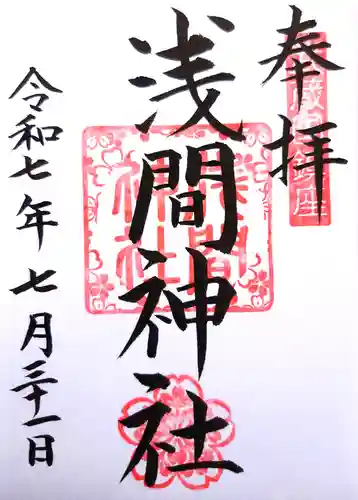 奉拝
浅間神社
令和七年七月三十一日
浅間
神社